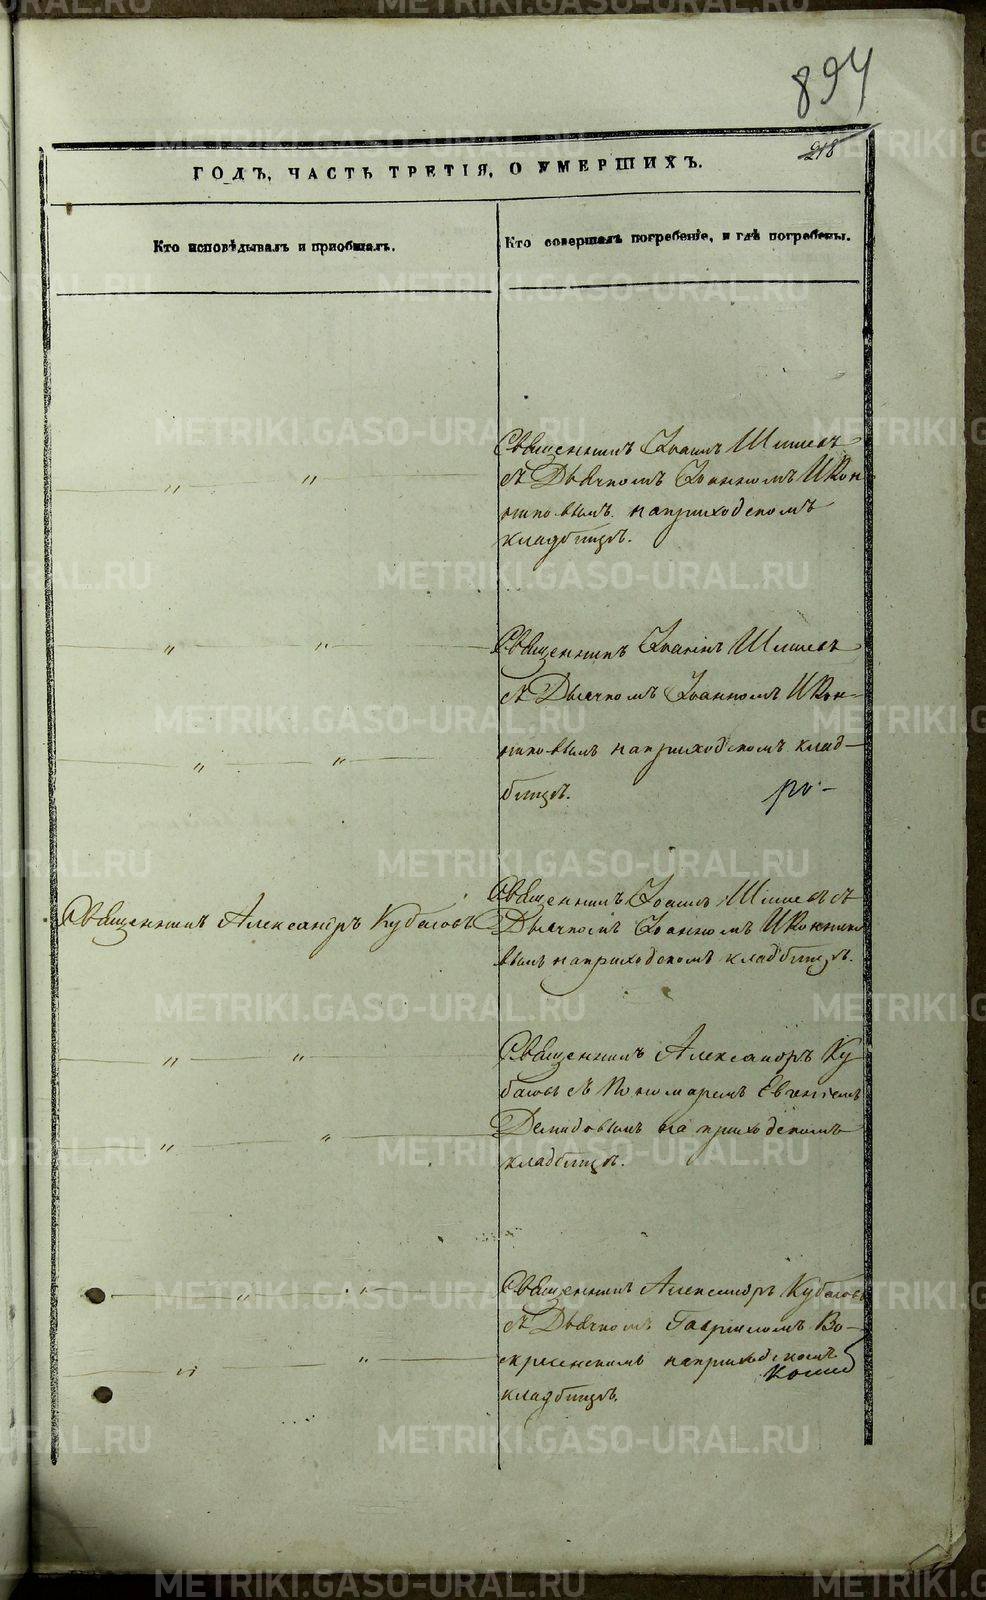 894
218
ГОДЪ, ЧАСТЬ ТРЕТІЯ, О УМЕРШИХЪ.
Кто исповѣдывалъ и приобщалъ.
Кто совершалъ погребеніе, и гдѣ погребены.
Священникъ Іоаннъ Шишевъ
съ Дьячкомъ Іоанномъ Икон
никовымъ на приходскомъ
кладбищѣ.
Священникъ Іоаннъ Шишевъ
съ Дьячкомъ Іоанномъ Икон-
никовымъ на приходскомъ клад-
бищѣ.
Священникъ Александръ Кубасовъ
Священникъ Іоаннъ Шишевъ съ
Дьячкомъ Іоанномъ Иконнико
вымъ на приходскомъ кладбищѣ.
Священникъ Александръ Ку
басовъ съ Пономаремъ Евгеніемъ
Демидовымъ на приходскомъ
кладбищѣ.
Священникъ Александръ Кубасовъ
съ Дьячкомъ Гавріиломъ Во-
скресенскимъ на приходскомъ
кладбищѣ.
METRIKI.GASO-URAL.RU